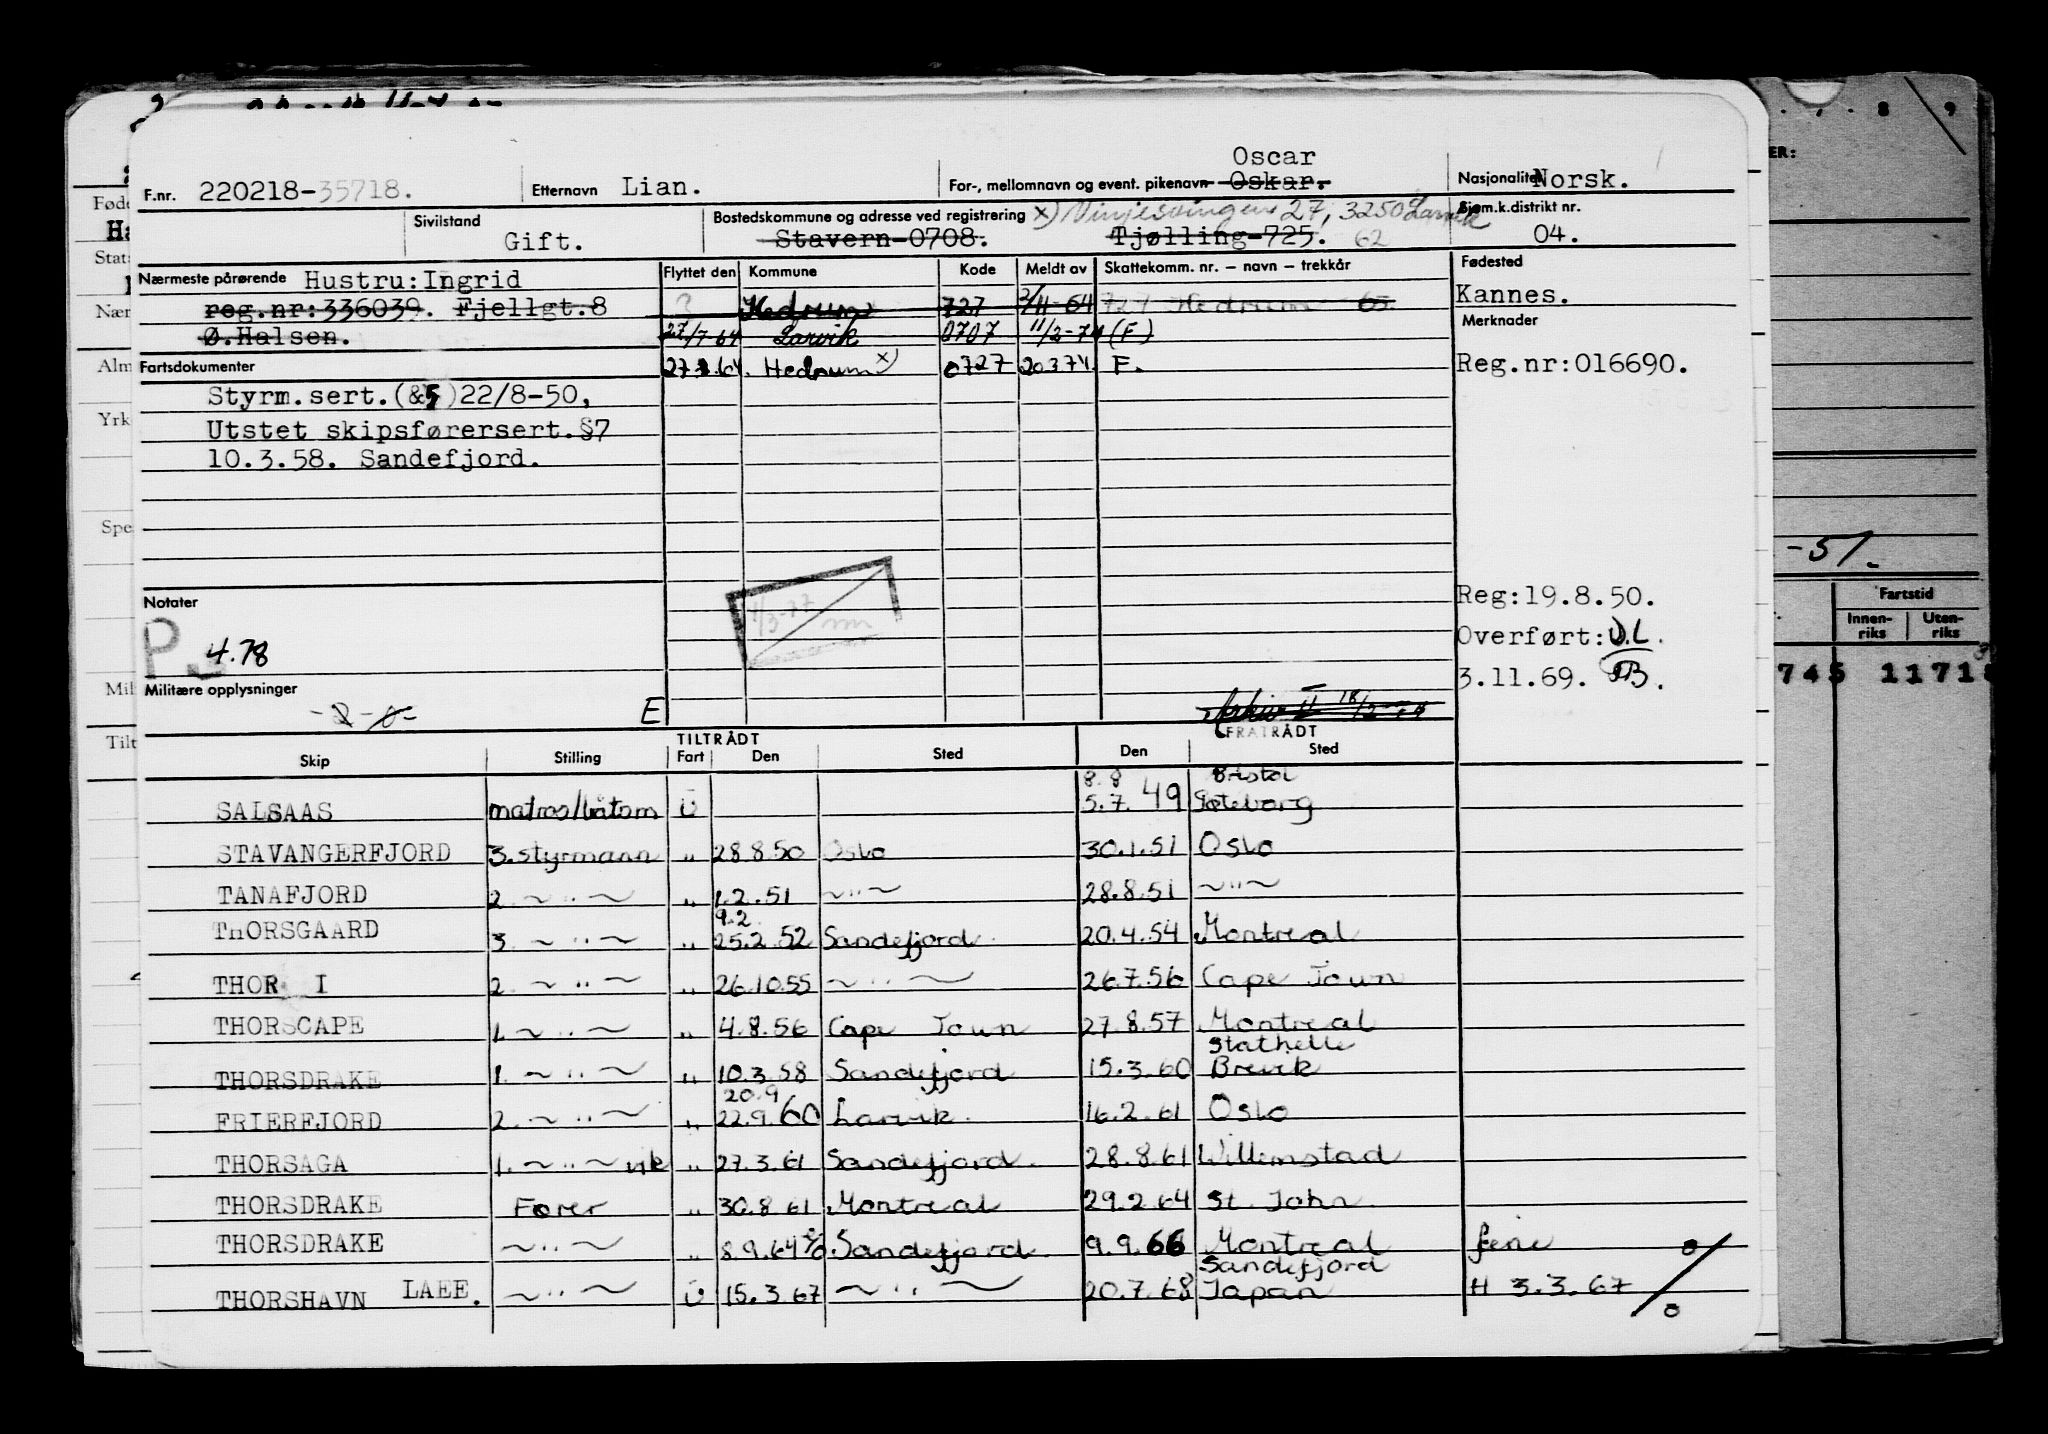 Oscar
F.nr. 220218-35718. Etternavn Lian. For-, mellomnavn og event. pikenavn Oskar. Nasjonalitet Norsk.
Sivilstand Gift. Bostedskommune og adresse ved registrering x) Vinjesvingen 27, 3250 Larvik Sjøm.k.distrikt nr. 04.
Stavern-0708. Tjølling-725. 62
Nærmeste pårørende Hustru:Ingrid Flyttet den Kommune Kode Meldt av Skattekomm. nr. – navn – trekkår Fødested
reg.nr:336039. Fjellgt.8 ? Hedrum 727 3/11-64 727 Hedrum 65 Kannes.
Ø.Halsen. 27/7-64 Larvik 0707 11/2-74 (F) Merknader
Fartsdokumenter 27.7.64. Hedrum x) 0727 20374. F. Reg.nr:016690.
Styrm.sert.(&5)22/8-50,
Utstet skipsførersert.§7
10.3.58. Sandefjord.
-51.
Fartstid
Innen-riks Uten-riks
745 11718
Reg:19.8.50.
Notater
P. 4.78
Overført: U.L.
3.11.69.
Militære opplysninger
E
Arkiv II 18/2-74
TILTRÅDT FRATRÅDT
Skip Stilling Fart Den Sted Den Sted
8.8 Bristol
SALSAAS matros/båtsm U 5.7.49 Gøteborg
STAVANGERFJORD 3.styrmann " 28.8.50 Oslo 30.1.51 Oslo
TANAFJORD 2. ~ " ~ " 1.2.51 ~ " ~ 28.8.51 ~ " ~
9.2
ThORSGAARD 3. ~ " ~ " 25.2.52 Sandefjord 20.4.54 Montreal
THOR I 2. ~ " ~ " 26.10.55 ~ " ~ 26.7.56 Cape Town
THORSCAPE 1. ~ " ~ " 4.8.56 Cape Town 27.8.57 Montreal
Stathelle
THORSDRAKE 1. ~ " ~ " 10.3.58 Sandefjord 15.3.60 Brevik
20.9
FRIERFJORD 2. ~ " ~ " 22.9.60 Larvik. 16.2.61 Oslo
THORSAGA 1. ~ " ~ vik " 27.3.61 Sandefjord. 28.8.61 Willemstad
THORSDRAKE Fører " 30.8.61 Montreal 29.2.64 St. John
THORSDRAKE ~ " ~ " 8.9.64 Sandefjord 9.9.66 Montreal ferie
Sandefjord
THORSHAVN LAEE. ~ " ~ U 15.3.67 ~ " ~ 20.7.68 Japan H 3.3.67